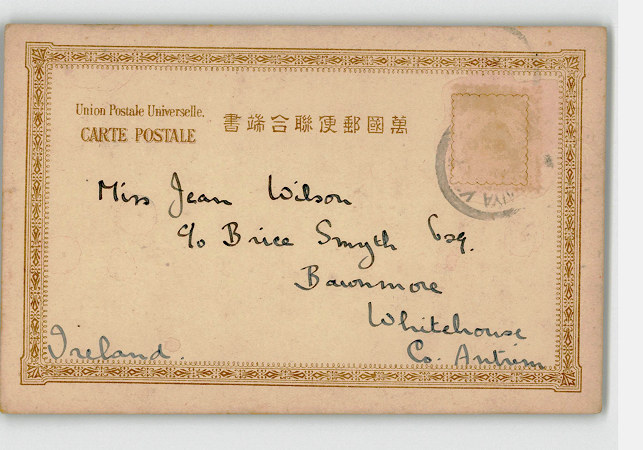 Union Postale Universelle.
CARTE POSTALE
書端合聯便郵國萬
Miss Jean Wilson
c/o Brice Smyth Esq.
Bawnmore
Whitehouse
Co. Antrim
Ireland.